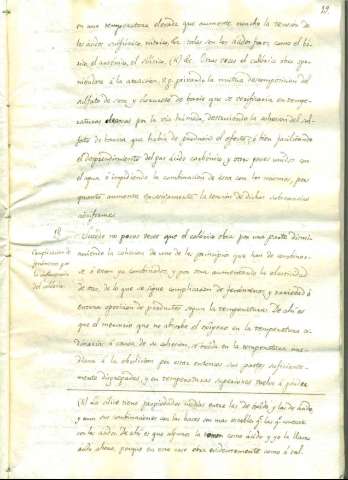 29.
en una temperatura elevada que aumente mucho la tension de
los acidos sulfúrico, nitrico, los cuales son los ácidos fijos, como el bó-
rico, el arsénico, el silícico, (*) &c. Otras veces el calórico obra opo-
niendose á la atraccion, v. g. privando la mutua descomposicion del
sulfato de sosa y carbonato de barita que se verificaria en tempe-
raturas por la via húmeda, destruyendo la cohesion del sul-
fato de barita que habia de producir el efecto; ó bien facilitando
el desprendimiento del gas ácido carbónico y otros poco unidos con
el agua ó impidiendo la combinacion de estos con los mismos, por
quanto aumenta excesivamente la tension de dichas substancias
aëriformes.
18
Complicacion de
fenómenos por
la
del calórico.
Sucede no pocas veces que el calórico obra por una parte dismi-
nuyendo la cohesion de uno de los principios que han de combinar-
se ó estan ya combinados, y por otra aumentando la elasticidad
de otro, de lo que se sigue complicacion de fenómenos y variedad ó
entera oposicion de productos segun la temperatura. De ahi es
que el mercurio que no absorbe el oxígeno en la temperatura or-
dinaria á causa de su cohesion, se oxida en la temperatura inme-
diata á la ebulicion por estar entonces sus partes suficiente-
mente disgregadas, y en temperaturas superiores vuelve á perder
(*) La silice tiene propiedades medias entre las de óxido, y las de ácido,
y aun sus combinaciones con las bases son mas estables qe. las qe. contrae
con los ácidos: de ahi es que algunos la como ácido y yo la llamo
ácido ahora, porque en este caso obra evidentemente como á tal.